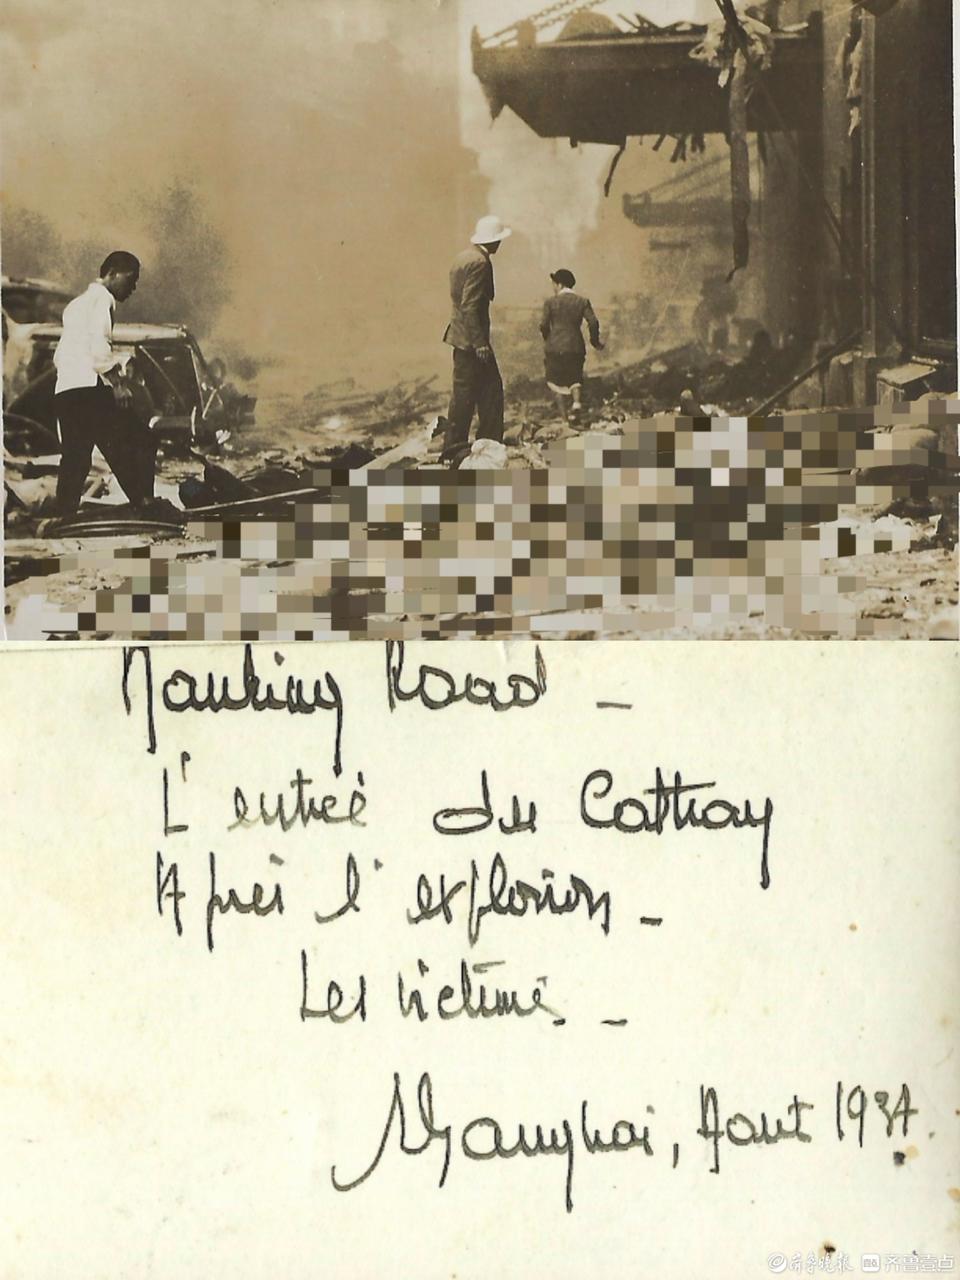 Nanking Road -
L'entrée du Cathay
Après l'explosion -
Les victimes -
Shanghai, Aout 1937.
齐鲁晚报 齐鲁壹点